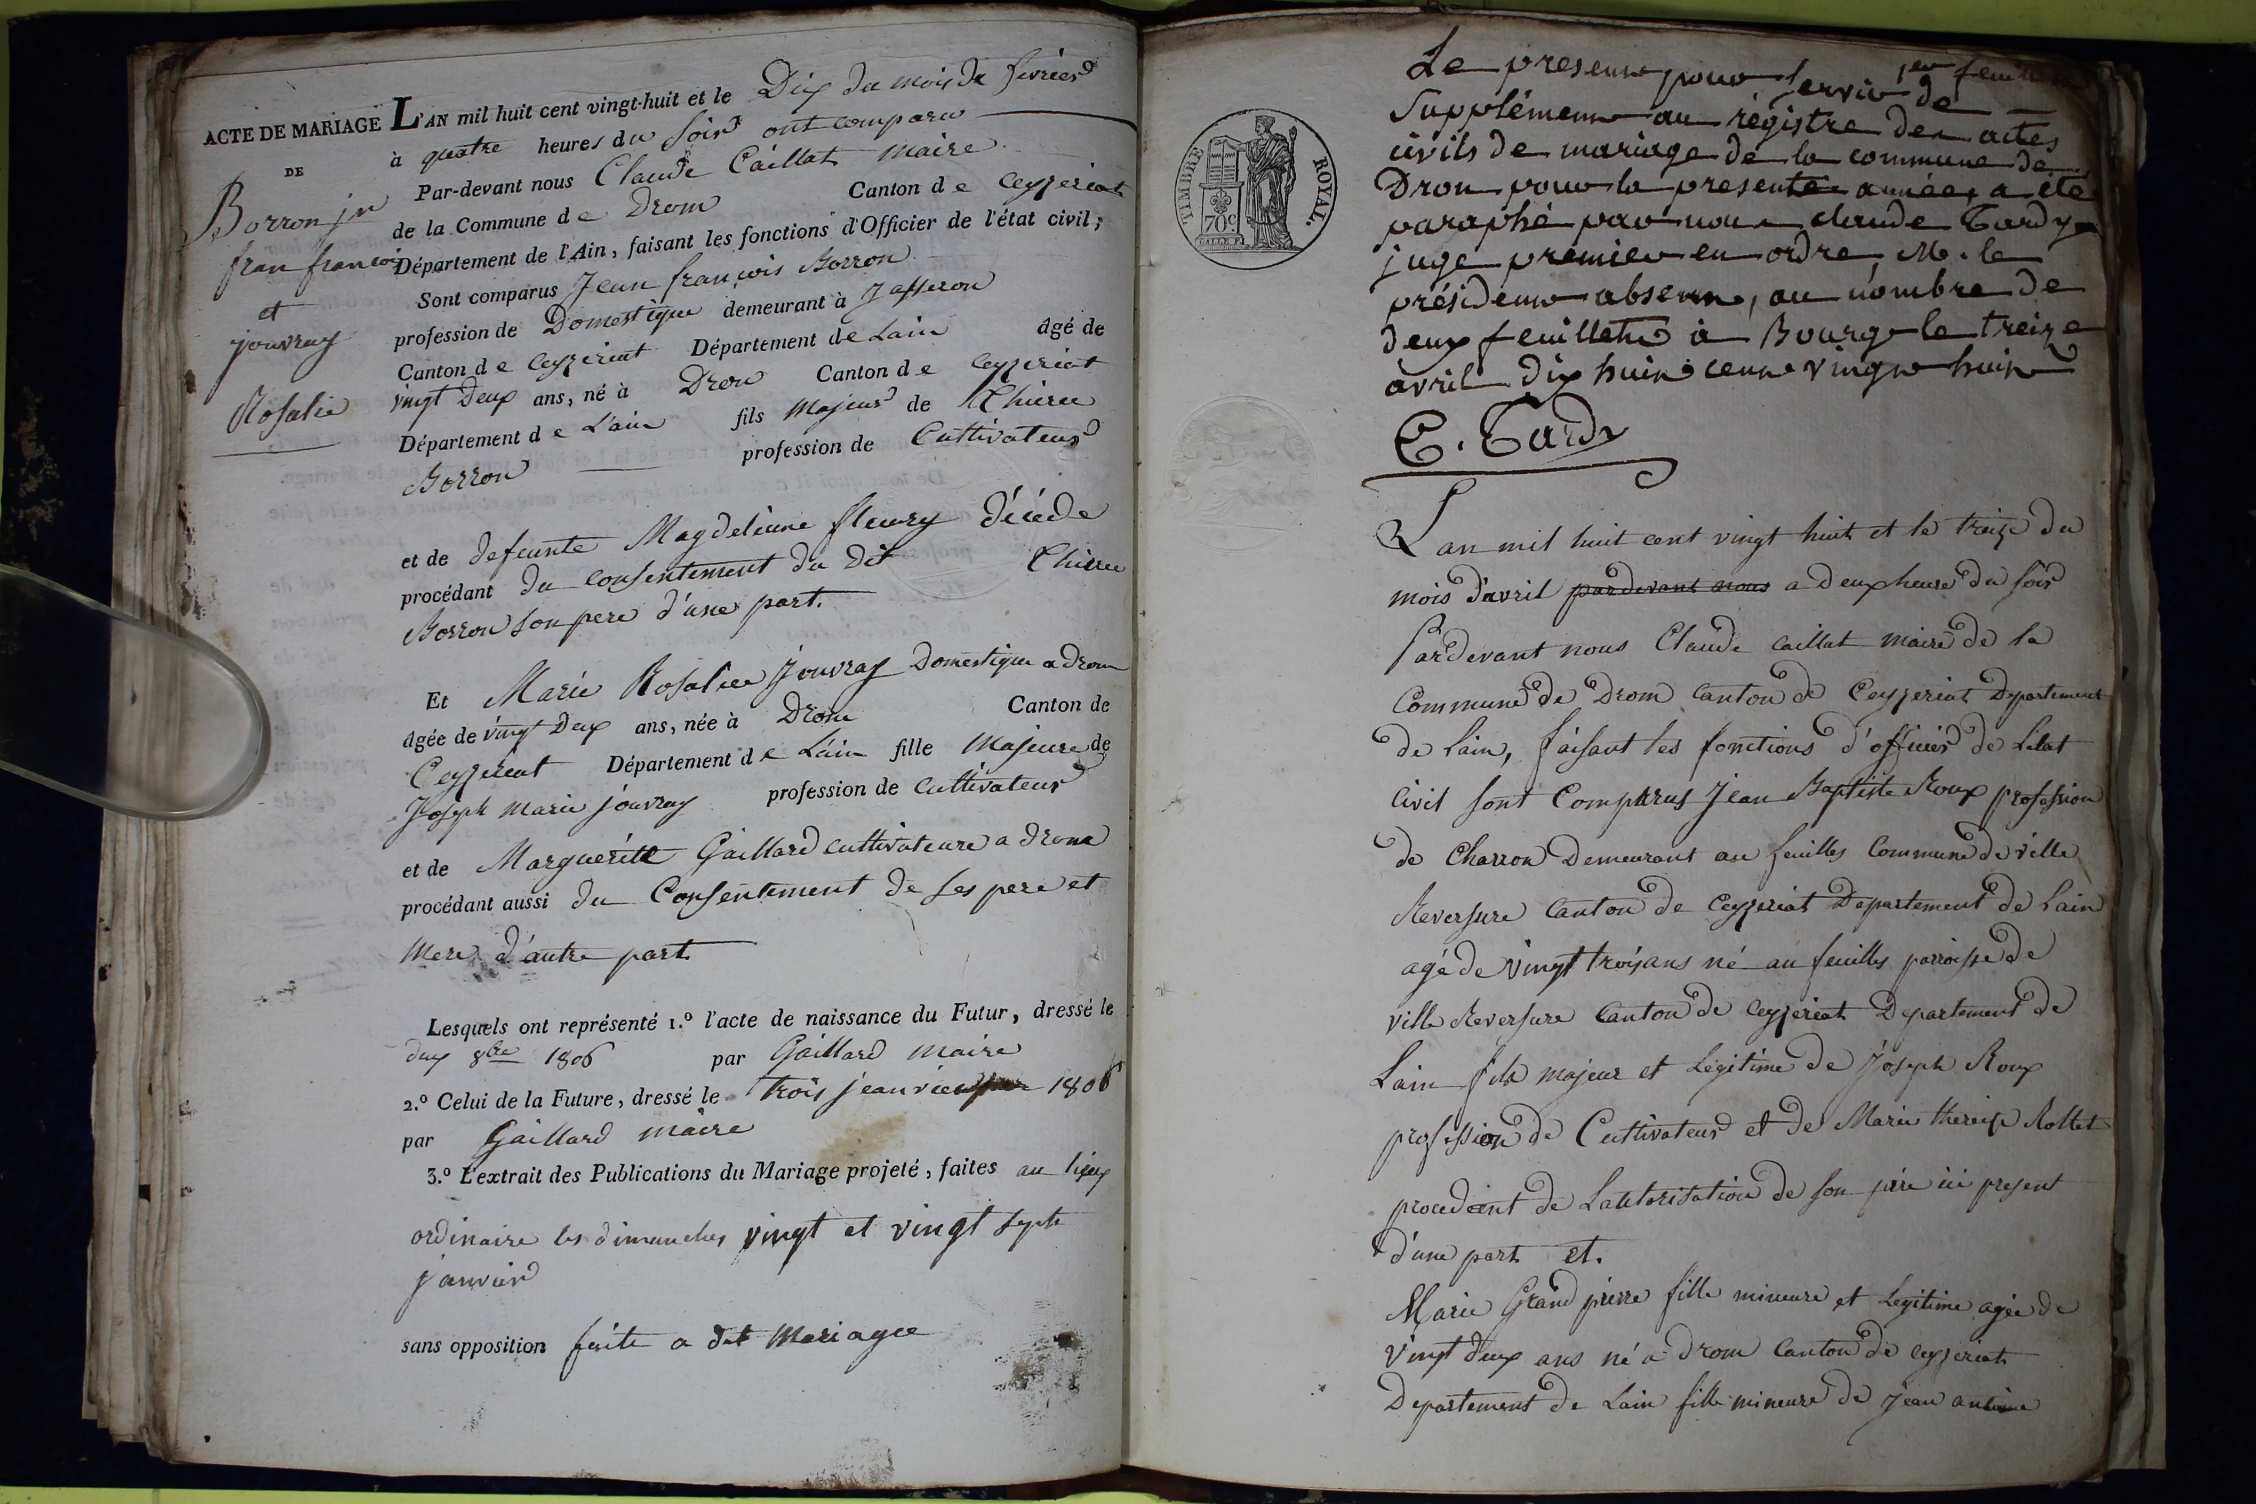 ACTE DE MARIAGE
DE
Borron jn
fran francoi
et
jouvray
Rosalie
L'AN mil huit cent vingt-huit et le Dix du mois de fevrier
à quatre heures du soir ont comparu
Par-devant nous Claude Caillat Maire
de la Commune de Drom Canton de Ceyzeriat
Département de l'Ain, faisant les fonctions d'Officier de l'état civil;
Sont comparus Jean françois Borron
profession de Domestique demeurant à Jasseron
Canton de Ceyzeriat Département de Lain âgé de
vingt Deux ans, né à Drom Canton de Ceyzeriat
Département de L'ain fils Majeur de Thiree
Borron profession de Cultivateur
et de defeunte Magdeleine fleury décéde
procédant du Consentement du dit Thiree
Borron son pere d'une part.
Et Marie Rosalie Jouvray Domestique a drom
âgée de vingt Deux ans, née à Drom Canton de
Ceyzeriat Département de L'ain fille Majeure de
Joseph marie jouvray profession de Cultivateur
et de Marguerite Gaillard cultivateure a drom
procédant aussi du Consentement de ses pere et
Mere d'autre part
Lesquels ont représenté 1.º l'acte de naissance du Futur, dressé le
dux 8bre 1806 par Gaillard maire
2.º Celui de la Future, dressé le trois jeanvier 1806
par Gaillard maire
3.º L'extrait des Publications du Mariage projeté, faites au lieux
ordinaire les dimanches vingt et vingt septe
janvier
sans opposition faite a dit Mariage
Le present pour servir de 1er feuillet
Supplément au régistre des actes
civils de mariage de la commune de
Drom pour la presente année, a été
paraphé par nous claude Tardy
juge premier en ordre, M. le
président absent, au nombre de
deux feuillets à Bourg le treize
avril dix huit cent vingt huit
C. Tardy
TIMBRE ROYAL.
70c.
Lan mil huit cent vingt huit et le treize du
mois d'avril pardevant nous a Deux heure du soir
Pardevant nous Claude caillat maire de la
Commune de Drom Canton de Ceyzeriat Departement
de Lain, faisant les fonctions d'officier de Létat
Civil sont Comparus Jean Baptiste Roux profession
de Charron Demeurant au feuilles Commune de ville
Reversure Canton de Ceyzeriat Departement de Lain
agé de vingt troisans né au feuilles parroisse de
ville Reversure Canton de Ceyzeriat Departement de
Lain fils majeur et Légitime de Joseph Roux
profession de Cultivateur et de Marie thereise Rollet
procedant de Lautorisation de son père ici present
d'une part et.
Marie Grand pierre fille mineure et Legitime agée de
vingt deux ans né a Drom Canton de Ceyzeriat
Departement de Lain fille mineure de Jean antoine